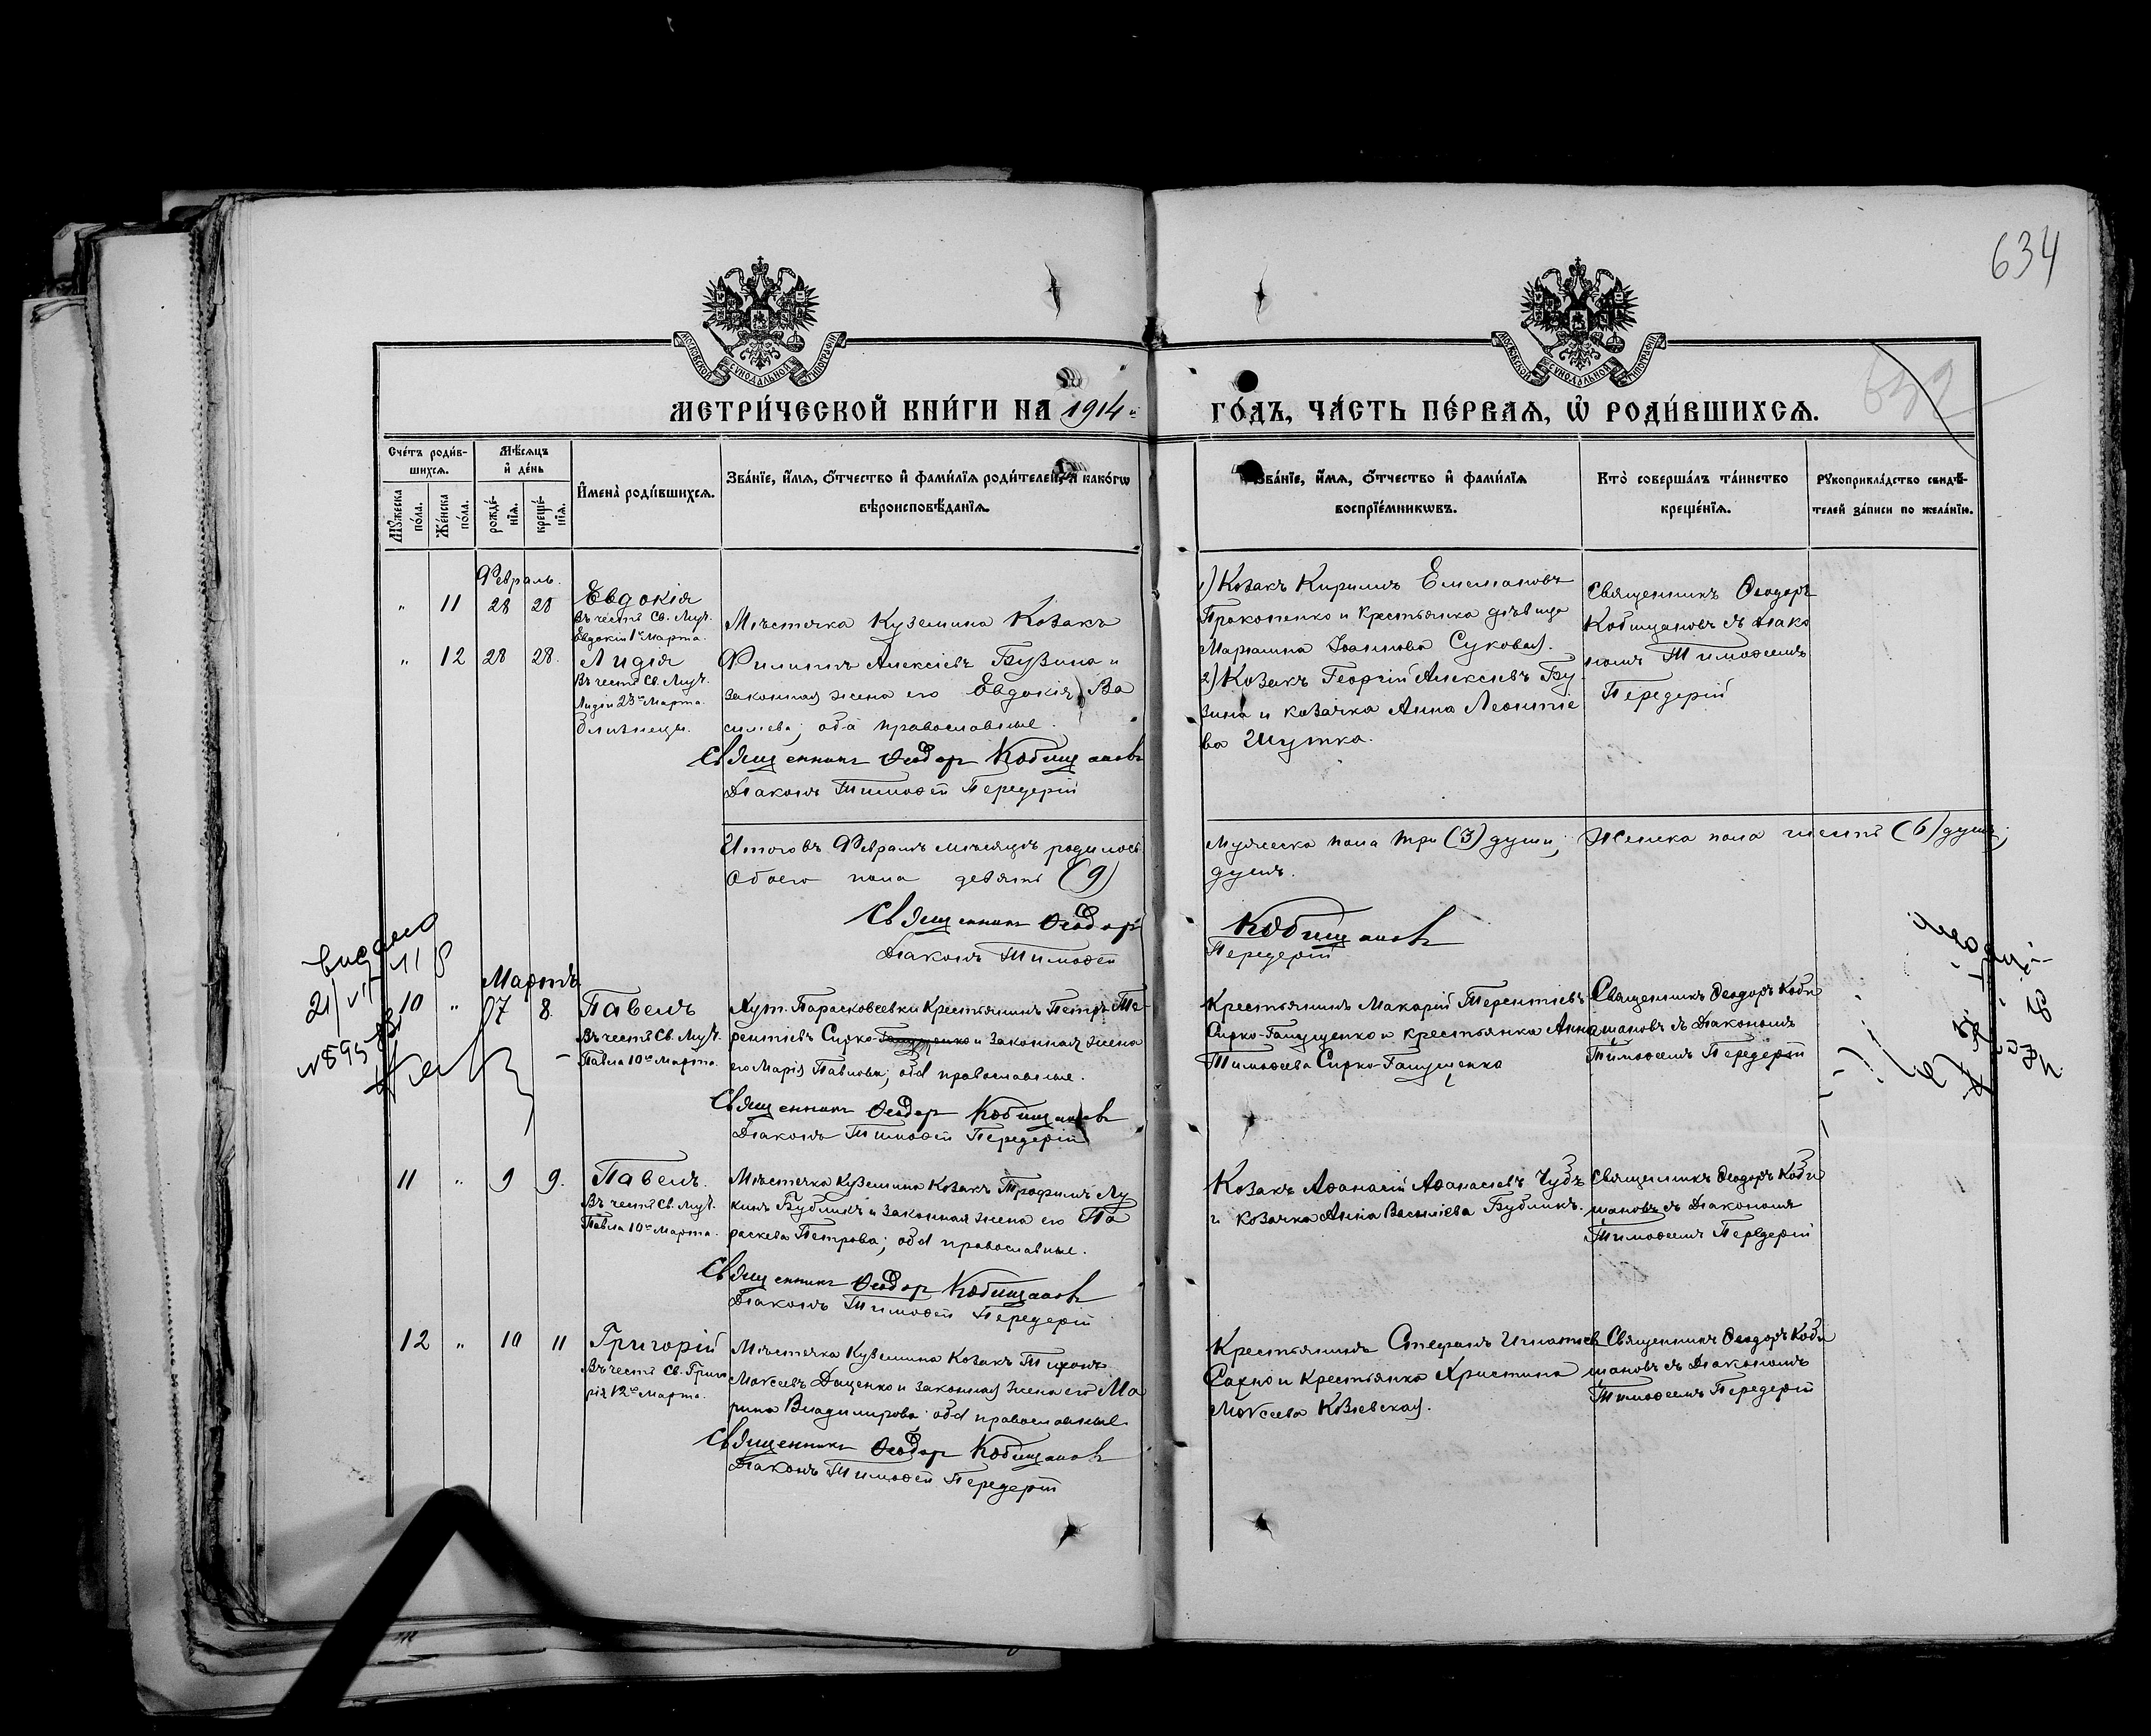 634
МОСКОВСКОЙ СѴНОДАЛЬНОЙ ТИПОГРАФІИ
МОСКОВСКОЙ СѴНОДАЛЬНОЙ ТИПОГРАФІИ
МЕТРИ́ЧЕСКОЙ КНИ́ГИ НА 1914
ГО́ДЪ, ЧА́СТЬ ПЕ́РВАЯ, Ѡ РОДИ́ВШИХСЯ.
Сче́тъ роди́в-
шихся.
Мѣ́сяцъ
и де́нь
Мꙋ́жеска
по́ла.
Же́нска
по́ла.
рожде́-
нїя.
креще́-
нїя.
Имена̀ роди́вшихся.
Зва́нїе, и́мя, о́тчество и фами́лїя роди́телей, и како́гѡ
вѣроисповѣ́данїя.
Зва́нїе, и́мя, о́тчество и фами́лїя
воспрїе́мникѡвъ.
Кто̀ соверша́лъ та́инство
креще́нїя.
Рꙋкоприкла́дство свидѣ́-
телей за́писи по жела́нїю.
Февраль.
" 11 28 28 Евдокія
Въ честь Св. Муч.
Евдокіи 1го Марта.
" 12 28 28. Лидія
Въ честь Св. Муч.
Лидіи 23го Марта.
близнецы.
Мѣстечка Куземина Козакъ
Филиппъ Алексіевъ Бузина и
законная жена его Евдокія Ва
силіева; оба православные.
Священникъ Ѳеодоръ Кобищановъ
Діаконъ Тимоѳей Передерій
1) Козакъ Кириллъ Емеліановъ
Прокопенко и крестьянка дѣвица
Маріамна Іоаннова Суковая.
2) Козакъ Георгій Алексіевъ Бу-
зина и козачка Анна Леонтіе
ва Шутка.
Священникъ Ѳеодоръ
Кобищановъ съ діако
номъ Тимоѳеемъ
Передерій
Итого въ Февралѣ мѣсяцѣ родилось
обоего пола девять (9)
Мужеска пола три (3) души; Женска пола шесть (6) душъ;
душъ.
Священникъ Ѳеодоръ
Кобищановъ
Діаконъ Тимоѳей
Передерій
21/VII
Мартъ
10 " 07 8. Павелъ
Въ честь Св. Муч.
Павла 10го Марта.
Хут. Парасковеевки Крестьянинъ Петръ Те-
рентіевъ Сирко-Ганущенко и законная жена
его Марія Павлова; оба православные.
Священникъ Ѳеодоръ Кобищановъ
Діаконъ Тимоѳей Передерій
Крестьянинъ Макарій Терентіевъ
Сирко-Ганущенко и крестьянка Анна
Тимоѳеева Сирко-Ганущенко
Священникъ Ѳеодоръ Коби
щановъ съ Діакономъ
Тимоѳеемъ Передерій
11 " 9 9. Павелъ.
Въ честь Св. Муч.
Павла 10го Марта.
Мѣстечка Куземина Козакъ Трофимъ Лу
кинъ Бубликъ и законная жена его Па
раскева Петрова; оба православные.
Священникъ Ѳеодоръ Кобищановъ
Діаконъ Тимоѳей Передерій
Козакъ Аѳанасій Аѳанасіевъ Чубъ
и козачка Анна Василіева Бубликъ.
Священникъ Ѳеодоръ Коби
щановъ съ Діакономъ
Тимоѳеемъ Передерій
12 " 10 11 Григорій
Въ честь Св. Григо
рія 12го Марта.
Мѣстечка Куземина Козакъ Тихонъ
Моксевъ Даценко и законная жена его Ма
рина Владимирова оба православные.
Священникъ Ѳеодоръ Кобищановъ
Діаконъ Тимоѳей Передерій
Крестьянинъ Стефанъ Игнатіев
Сахно и крестьянка Христина
Моксеева Козіевская.
Священникъ Ѳеодоръ Коби
щановъ съ Діакономъ
Тимоѳеемъ Передерій